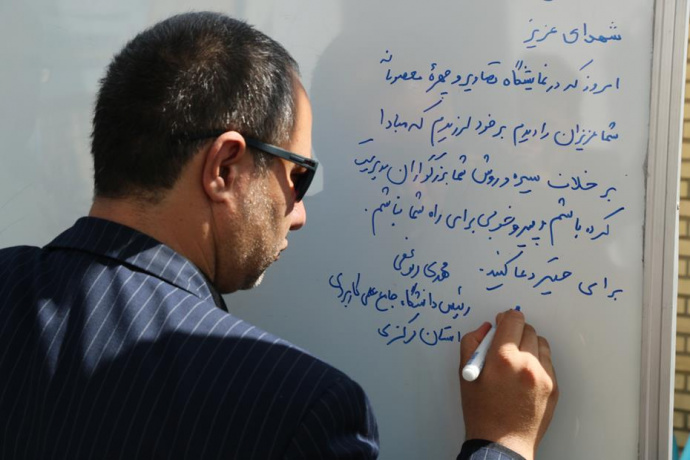 شهدای عزیز
امروز که در نمایشگاه تصاویر و چهرهٔ معصومانه
شما عزیزان را دیدم بر خود لرزیدم که مبادا
بر خلاف سیره و روش شما بزرگواران مدیریت
کرده باشم و پیرو خوبی برای راه شما نباشم.
برای حقیر دعا کنید.
مهدی
رئیس دانشگاه جامع علمی کاربردی
استان مرکزی